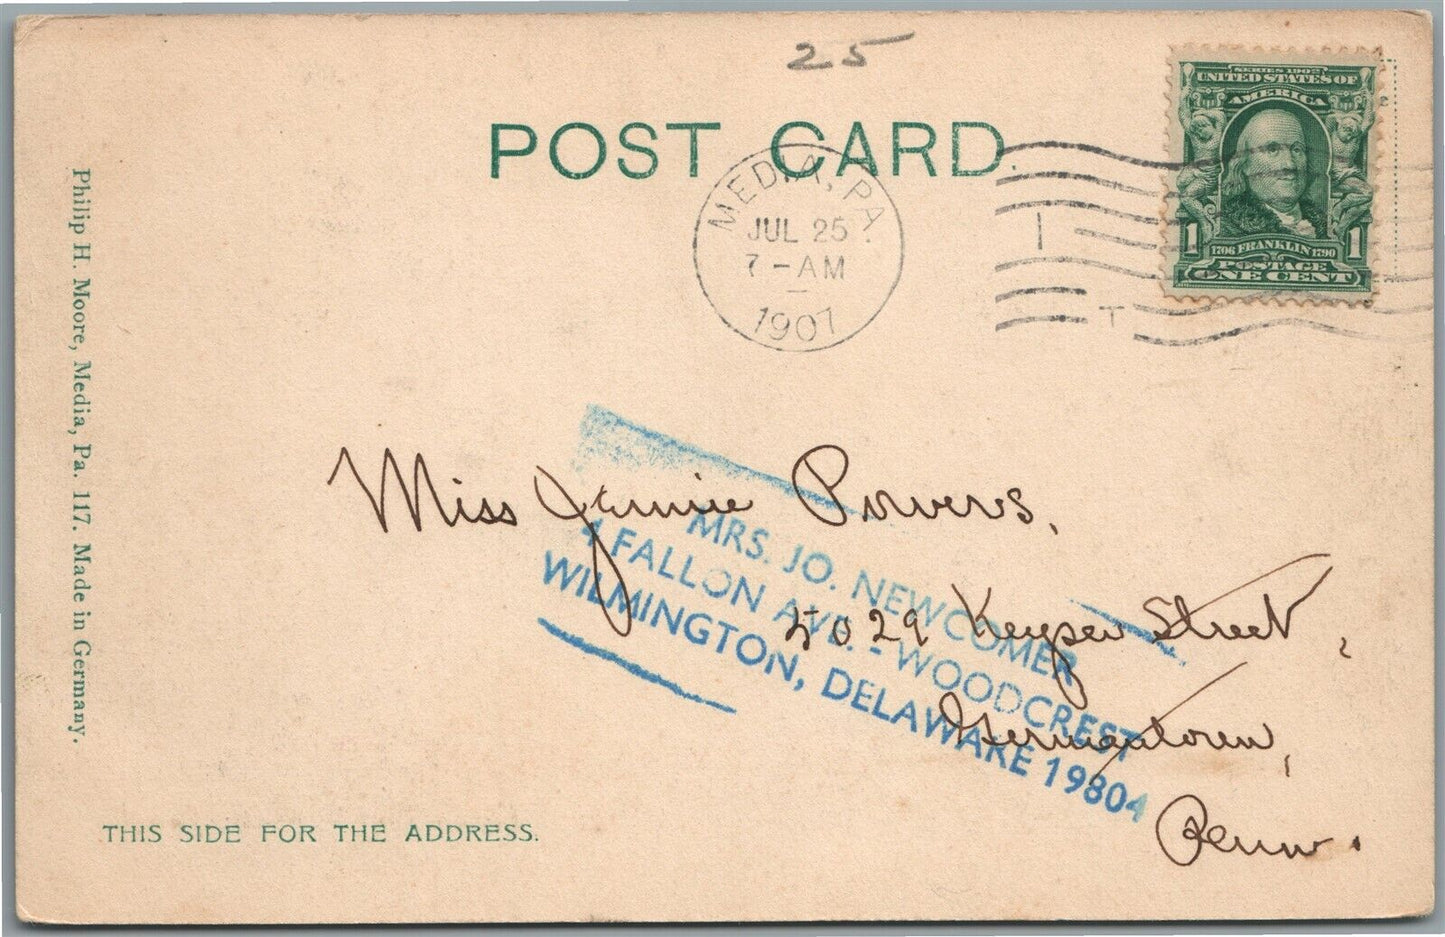 25
POST CARD.
SERIES 1902
UNITED STATES OF
AMERICA
1 1706 FRANKLIN 1790 1
POSTAGE
ONE CENT
MEDIA, PA.
JUL 25
7-AM
1907
T
Philip H. Moore, Media, Pa. 117. Made in Germany.
Miss Jennie Powers,
5029 Keyser Street,
Germantown,
Penn.
MRS. JO. NEWCOMER
4 FALLON AVE. - WOODCREST
WILMINGTON, DELAWARE 19804
THIS SIDE FOR THE ADDRESS.